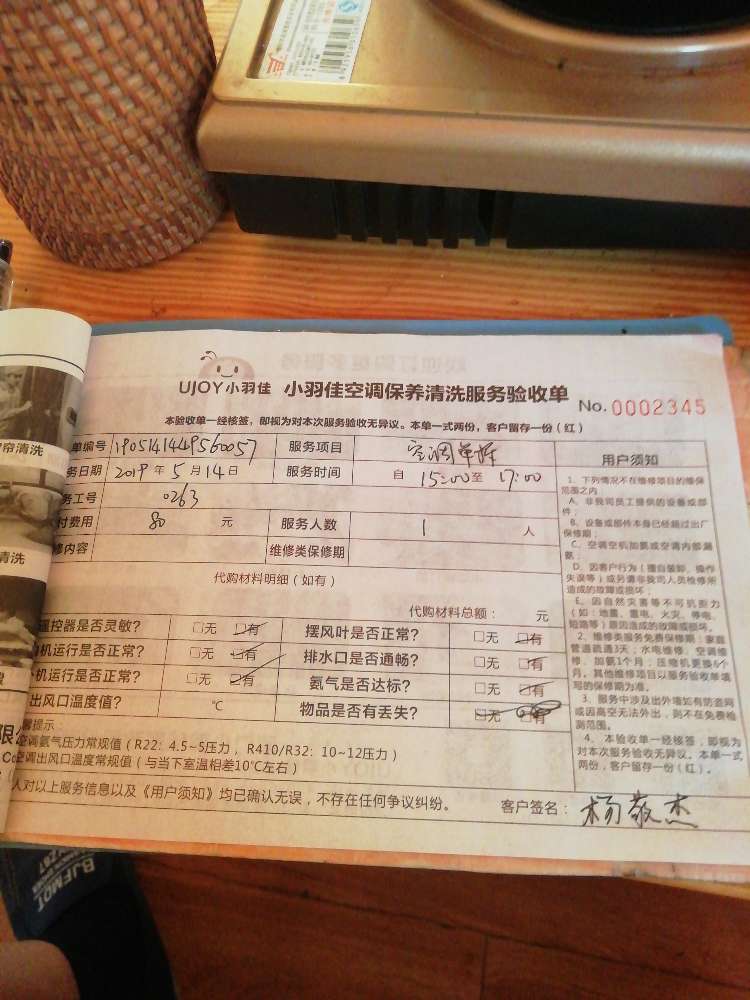 UJOY小羽佳 小羽佳空调保养清洗服务验收单 No. 0002345
本验收单一经核签，即视为对本次服务验收无异议。本单一式两份，客户留存一份（红）
单编号 1905141449560057 服务项目 空调单拆 用户须知
务日期 2019 年 5 月 14 日 服务时间 自 15:00 至 17:00
务工号 0263
付费用 80 元 服务人数 1 人
修内容 维修类保修期
代购材料明细（如有）
代购材料总额： 元
遥控器是否灵敏？ □无 □有 摆风叶是否正常？ □无 □有
机运行是否正常？ □无 □有 排水口是否通畅？ □无 □有
机运行是否正常？ □无 □有 氨气是否达标？ □无 □有
出风口温度值？ ℃ 物品是否有丢失？ □无 □有
提示：
空调氨气压力常规值（R22：4.5~5压力，R410/R32：10~12压力）
空调出风口温度常规值（与当下室温相差10℃左右）
人对以上服务信息以及《用户须知》均已确认无误，不存在任何争议纠纷。 客户签名：杨敬杰
1、下列情况不在维修项目的维保
范围之内
A、非我司员工提供的设备或部
件；
B、设备或部件本身已经超过出厂
保修期；
C、空调空机加氨或空调内部漏
氨；
D、因客户行为（擅自装卸、操作
失误等）或另请非我司人员检修所
造成的故障或损坏；
E、因自然灾害等不可抗拒力
（如：地震、雷电、火灾、停电、
短路等）原因造成的故障或损坏。
2、维修类服务免费保修期：家庭
管道疏通3天；水电维修、空调维
修、加氨1个月；压缩机更换6个
月。其他维修项目以服务验收单填
写的保修期为准。
3、服务中涉及出外墙如有防盗网
或因高空无法外出，则不在免费检
测范围。
4、本验收单一经核签，即视为
对本次服务验收无异议。本单一式
两份，客户留存一份（红）。
帘清洗
清洗
限公
Co
BJFMDT